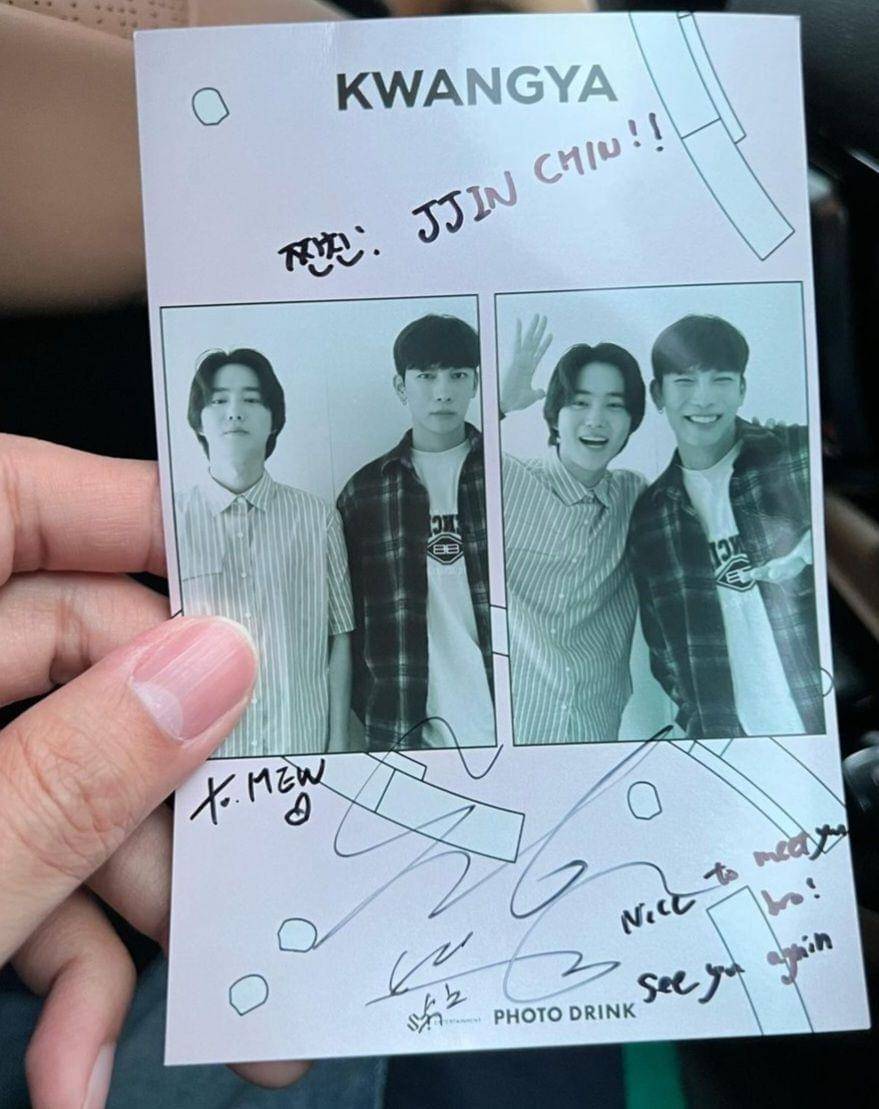 KWANGYA
찐친: JJIN CHIN!!
to. MEW
Nice to meet you
bro!
see you again
ENTERTAINMENT PHOTO DRINK